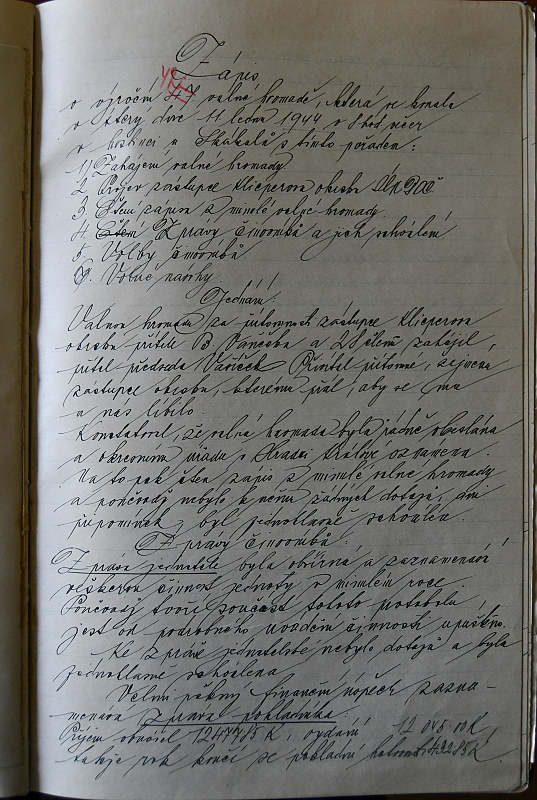 Zápis
o výroční 47 valné hromadě, která se konala
v úterý dne 11 ledna 1944 v 8 hod večer
v hostinci u Skákalů s tímto pořadem:
1) Zahájení valné hromady.
2. Projev zástupce Klicperova okrsku
3. Čtení zápisu z minulé valné hromady.
4. Čtení Zprávy činovníků a jich schválení
5. Volby činovníků.
6. Volné návrhy.
Jednání:
Valnou hromadu za přítomnosti zástupce Klicperova
okrsku přítele B. Vančeka a 28 členů zahájil
přítel předseda Vaníček. Přivítal přítomné, zejména
zástupce okrsku, kterému přál, aby se mu
u nás líbilo.
Konstatoval, že valná hromada byla řádně obeslána
a okresnímu úřadu v Hradci Králové oznámena.
Na to pak čten zápis z minulé valné hromady
a poněvadž nebylo k němu žádných dotazů, ani
připomínek, byl jednohlasně schválen.
Zprávy činovníků:
Zpráva jednatele byla obšírná a zaznamenává
veškerou činnost jednoty v minulém roce.
Poněvadž tvoří součást tohoto protokolu,
jest od podrobného uvádění činnosti upuštěno.
Ke zprávě jednatelské nebylo dotazů a byla
jednohlasně schválena.
Velmi pěkný finanční úspěch zazna-
menává Zpráva pokladníka.
Příjem obnášel 12477.85 K, vydání 12045.00 K,
takže rok končí se pokladní hotovostí 432.85 K.